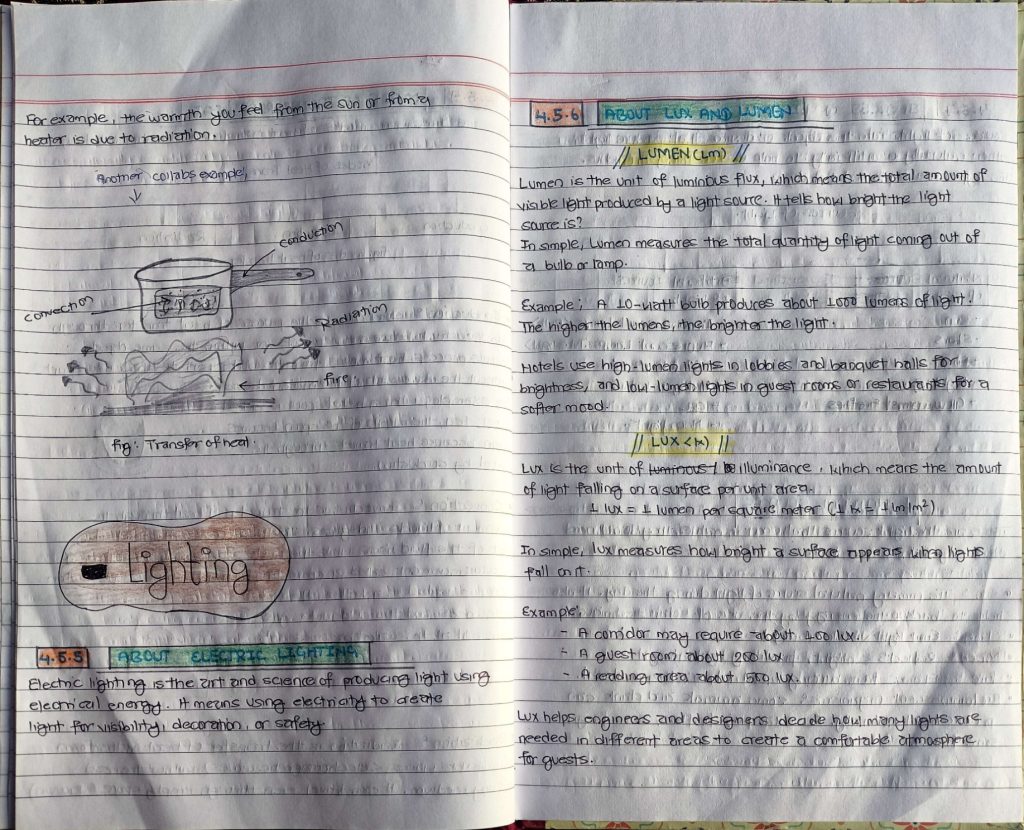 For example, the warmth you feel from the sun or from a
heater is due to radiation.
Another collabs example,
conduction
convection
Radiation
fire
fig: Transfer of heat.
Lighting
4.5.5 ABOUT ELECTRIC LIGHTING
Electric lighting is the art and science of producing light using
electrical energy. It means using electricity to create
light for visibility, decoration, or safety.
4.5.6 ABOUT LUX AND LUMEN
// LUMEN (Lm) //
Lumen is the unit of luminous flux, which means the total amount of
visible light produced by a light source. It tells how bright the light
source is?
In simple, Lumen measures the total quantity of light coming out of
a bulb or lamp.
Example: A 10-watt bulb produces about 1000 lumens of light.
The higher the lumens, the brighter the light.
Hotels use high-lumen lights in lobbies and banquet halls for
brightness, and low-lumen lights in guest rooms or restaurants for a
softer mood.
// LUX (lx) //
Lux is the unit of illuminance. Which means the amount
of light falling on a surface per unit area.
1 lux = 1 lumen per square meter (1 lx = 1 lm/m²)
In simple, lux measures how bright a surface appears when lights
fall on it.
Example:
- A corridor may require about 100 lux.
- A guest room about 200 lux
- A reading area about 500 lux.
Lux helps engineers and designers decide how many lights are
needed in different areas to create a comfortable atmosphere
for guests.